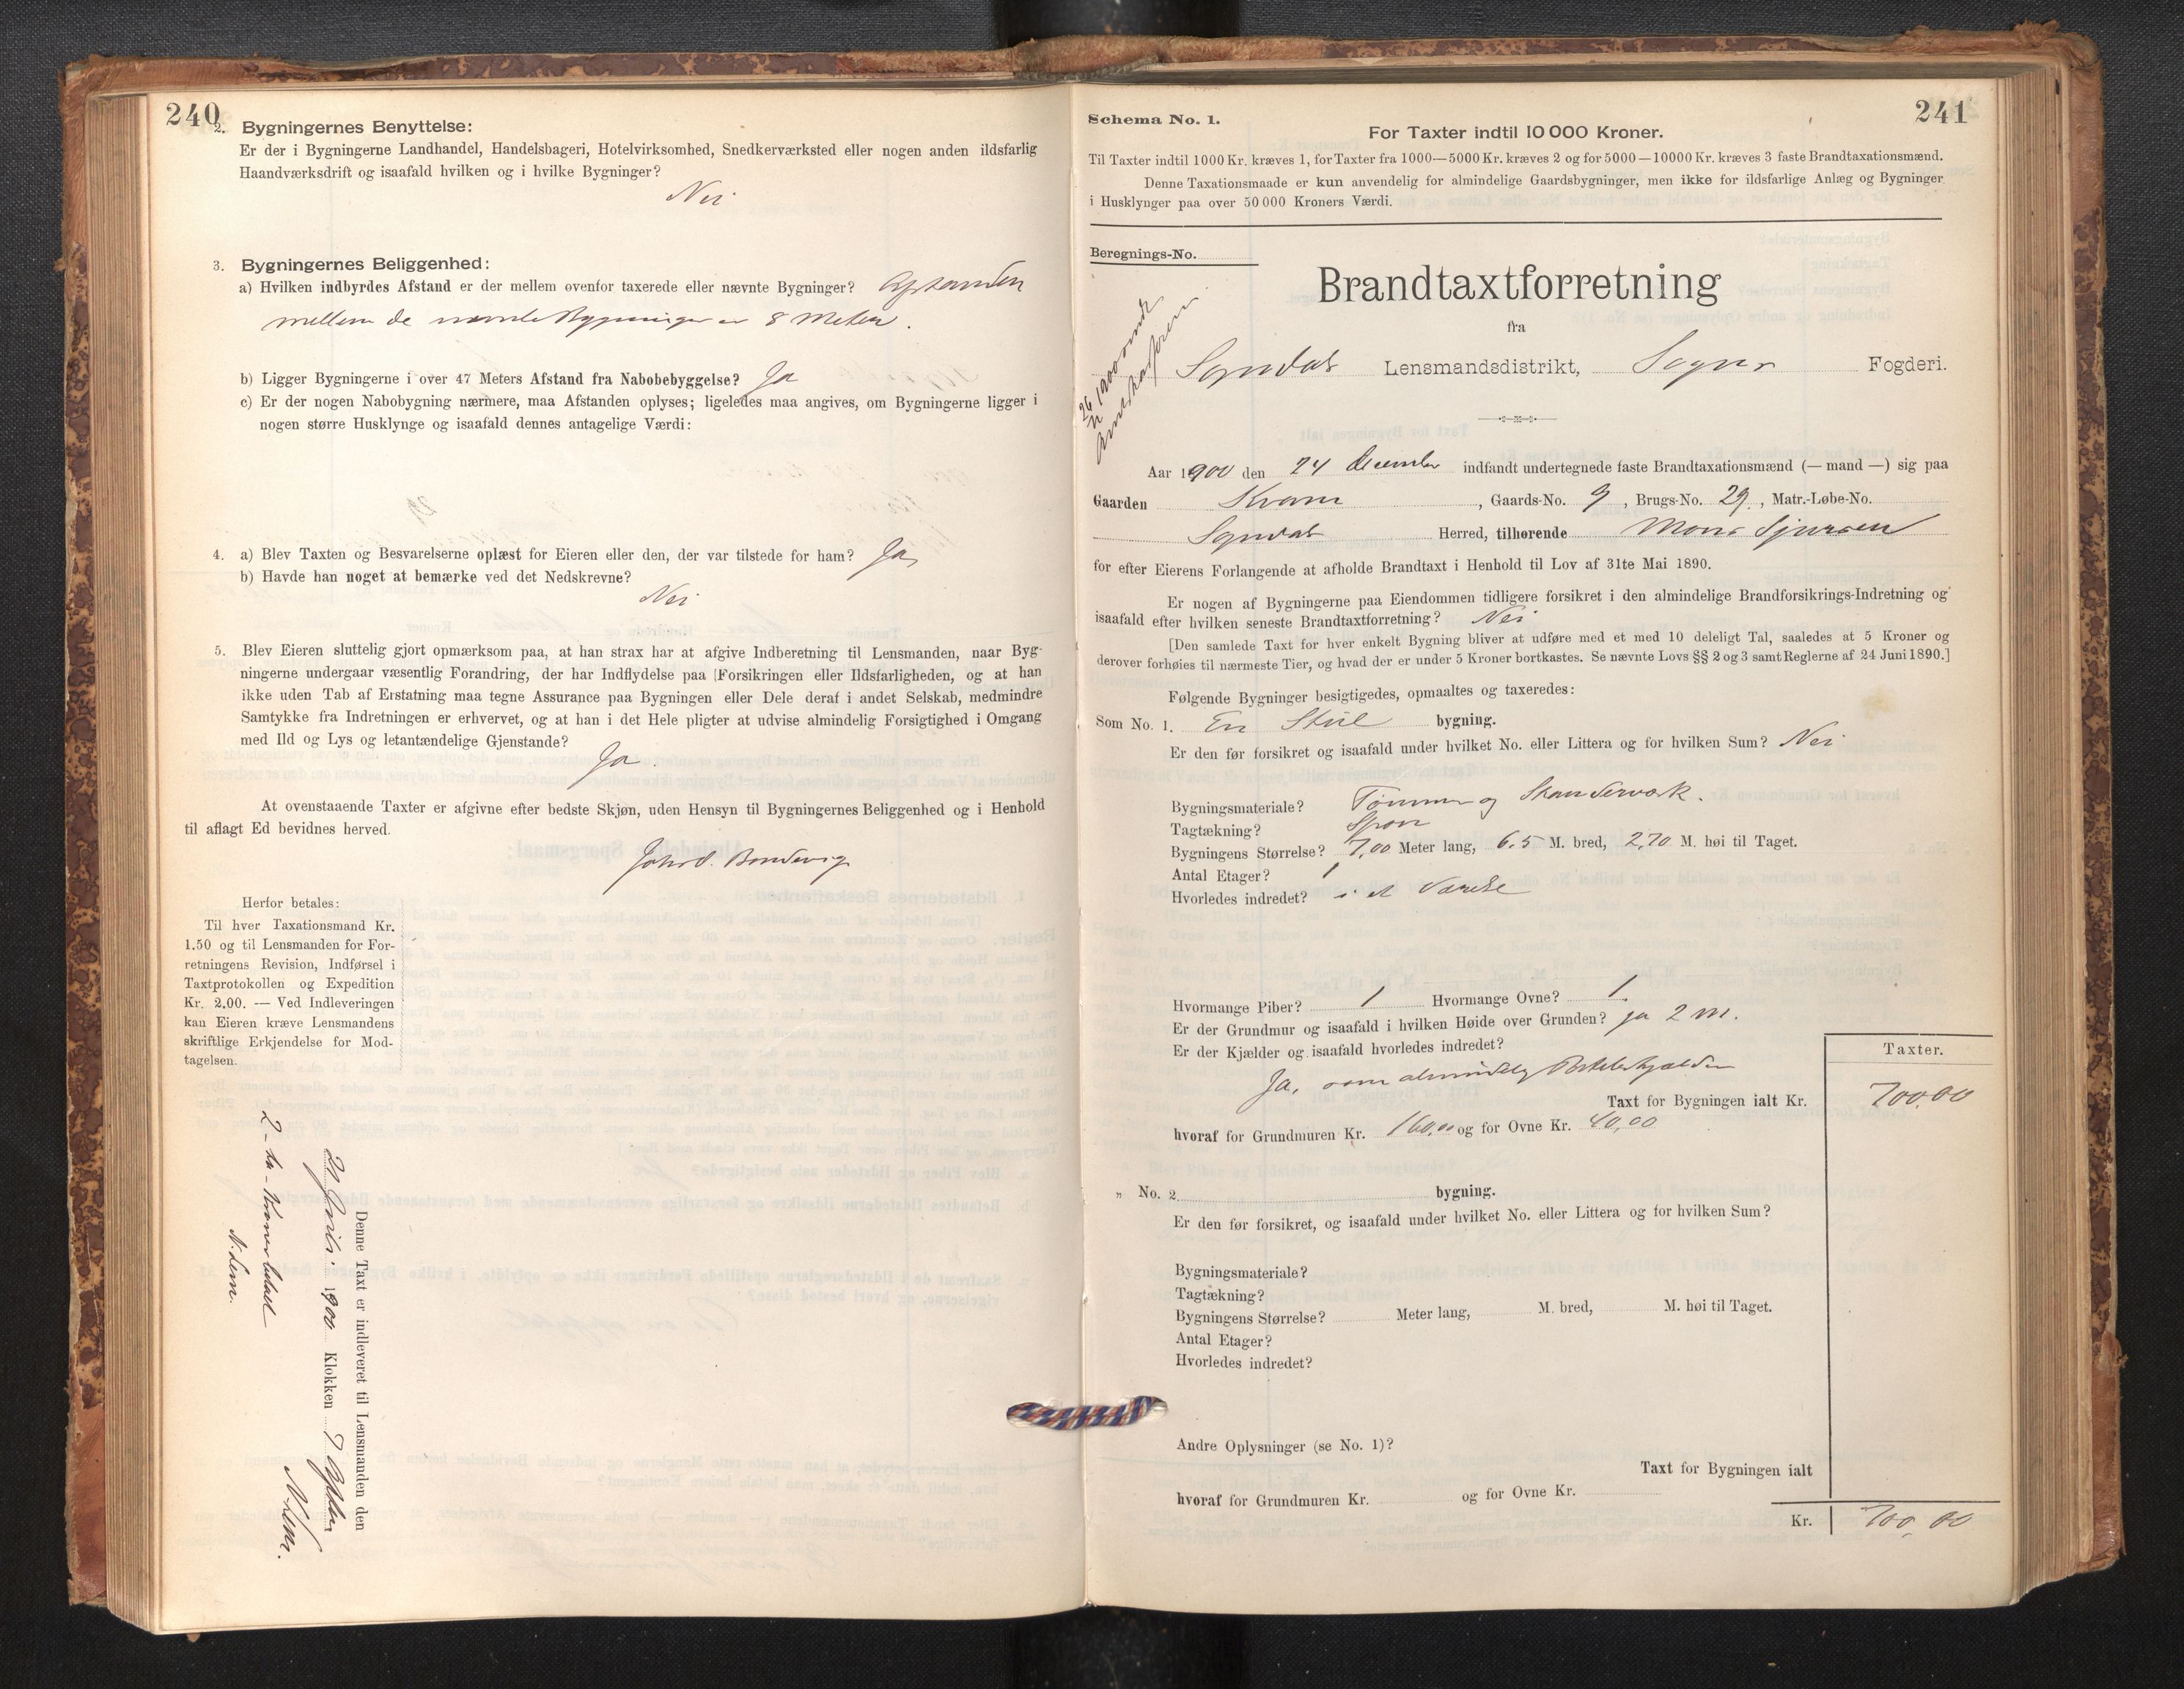 240
2. Bygningernes Benyttelse:
Er der i Bygningerne Landhandel, Handelsbageri, Hotelvirksomhed, Snedkerværksted eller nogen anden ildsfarlig
Haandværksdrift og isaafald hvilken og i hvilke Bygninger?
Nei
3. Bygningernes Beliggenhed:
a) Hvilken indbyrdes Afstand er der mellem ovenfor taxerede eller nævnte Bygninger? Afstanden
mellem de nævnte Bygninger er 8 Meter.
b) Ligger Bygningerne i over 47 Meters Afstand fra Nabobebyggelse? Ja
c) Er der nogen Nabobygning nærmere, maa Afstanden oplyses; ligeledes maa angives, om Bygningerne ligger i
nogen større Husklynge og isaafald dennes antagelige Værdi:
4. a) Blev Taxten og Besvarelserne oplæst for Eieren eller den, der var tilstede for ham? Ja
b) Havde han noget at bemærke ved det Nedskrevne?
Nei
5. Blev Eieren sluttelig gjort opmærksom paa, at han strax har at afgive Indberetning til Lensmanden, naar Byg-
ningerne undergaar væsentlig Forandring, der har Indflydelse paa Forsikringen eller Ildsfarligheden, og at han
ikke uden Tab af Erstatning maa tegne Assurance paa Bygningen eller Dele deraf i andet Selskab, medmindre
Samtykke fra Indretningen er erhvervet, og at han i det Hele pligter at udvise almindelig Forsigtighed i Omgang
med Ild og Lys og letantændelige Gjenstande?
Ja.
At ovenstaaende Taxter er afgivne efter bedste Skjøn, uden Hensyn til Bygningernes Beliggenhed og i Henhold
til aflagt Ed bevidnes herved.
Herfor betales:
Til hver Taxationsmand Kr.
1.50 og til Lensmanden for For-
retningens Revision, Indførsel i
Taxtprotokollen og Expedition
Kr. 2.00. — Ved Indleveringen
kan Eieren kræve Lensmandens
skriftlige Erkjendelse for Mod-
tagelsen.
Denne Taxt er indleveret til Lensmanden den
1900 Klokken 7
2 - to - Kroner betalt
241
Schema No. 1.
For Taxter indtil 10 000 Kroner.
Til Taxter indtil 1000 Kr. kræves 1, for Taxter fra 1000—5000 Kr. kræves 2 og for 5000—10000 Kr. kræves 3 faste Brandtaxationsmænd.
Denne Taxationsmaade er kun anvendelig for almindelige Gaardsbygninger, men ikke for ildsfarlige Anlæg og Bygninger
i Husklynger paa over 50 000 Kroners Værdi.
Beregnings-No.
Brandtaxtforretning
fra
Sogndal Lensmandsdistrikt, Sogns Fogderi.
Aar 1900 den 24 december indfandt undertegnede faste Brandtaxationsmænd (— mand —) sig paa
Gaarden Kvam, Gaards-No. 9, Brugs-No. 29, Matr.-Løbe-No.
Sogndal Herred, tilhørende Mons Sjursen
for efter Eierens Forlangende at afholde Brandtaxt i Henhold til Lov af 31te Mai 1890.
Er nogen af Bygningerne paa Eiendommen tidligere forsikret i den almindelige Brandforsikrings-Indretning og
isaafald efter hvilken seneste Brandtaxtforretning? Nei
[Den samlede Taxt for hver enkelt Bygning bliver at udføre med et med 10 deleligt Tal, saaledes at 5 Kroner og
derover forhøies til nærmeste Tier, og hvad der er under 5 Kroner bortkastes. Se nævnte Lovs §§ 2 og 3 samt Reglerne af 24 Juni 1890.]
Følgende Bygninger besigtigedes, opmaaltes og taxeredes:
Som No. 1. En bygning.
Er den før forsikret og isaafald under hvilket No. eller Littera og for hvilken Sum? Nei
Bygningsmateriale? Tømmer og Standerværk.
Tagtækning? Spon
Bygningens Størrelse? 7,00 Meter lang, 6,5 M. bred, 2,70 M. høi til Taget.
Antal Etager? 1
Hvorledes indredet? i et Værelse
Hvormange Piber? 1 Hvormange Ovne? 1.
Er der Grundmur og isaafald i hvilken Høide over Grunden? ja 2 m.
Er der Kjælder og isaafald hvorledes indredet?
Ja, som almindelig
Taxter.
Taxt for Bygningen ialt Kr. 700,00
hvoraf for Grundmuren Kr. 160,00 og for Ovne Kr. 40,00
„ No. 2 bygning.
Er den før forsikret, og isaafald under hvilket No. eller Littera og for hvilken Sum?
Bygningsmateriale?
Tagtækning?
Bygningens Størrelse? Meter lang, M. bred, M. høi til Taget.
Antal Etager?
Hvorledes indredet?
Andre Oplysninger (se No. 1)?
Taxt for Bygningen ialt
hvoraf for Grundmuren Kr. og for Ovne Kr.
Kr. 700,00